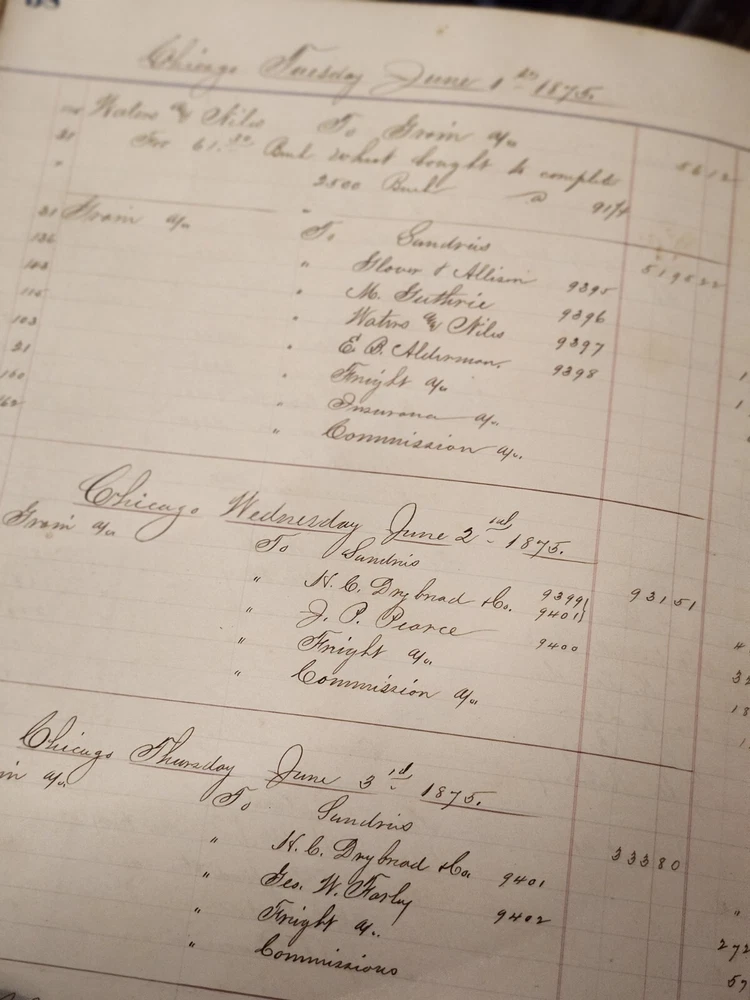 68
Chicago Tuesday June 1st 1875.
Waters & Niles To Grain a/c
21 For 61.30 Bush wheat bought to complete 5612
" 2500 Bush @ 91/4
21 Grain a/c To Sundries 519522
136 " Glover & Allison 9395
103 " M. Guthrie 9396
115 " Waters & Niles 9397
103 " E. B. Alderman. 9398
21 " Freight a/c.
150 " Insurance a/c.
162 " Commission a/c.
Chicago Wednesday June 2nd 1875.
Grain a/c To Sundries 93151
" H. C. Drybread & Co. 9399
9401
" J. P. Pearce 9400
" Freight a/c
" Commission a/c
Chicago Thursday June 3rd 1875.
a/c. To Sundries 33380
" H. C. Drybread & Co 9401
" Geo. W. Farley 9402
" Freight a/c.
" Commissions